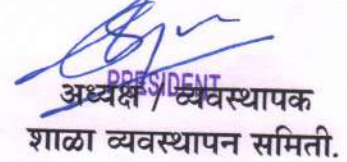 PRESIDENT
अध्यक्ष / व्यवस्थापक
शाळा व्यवस्थापन समिती.